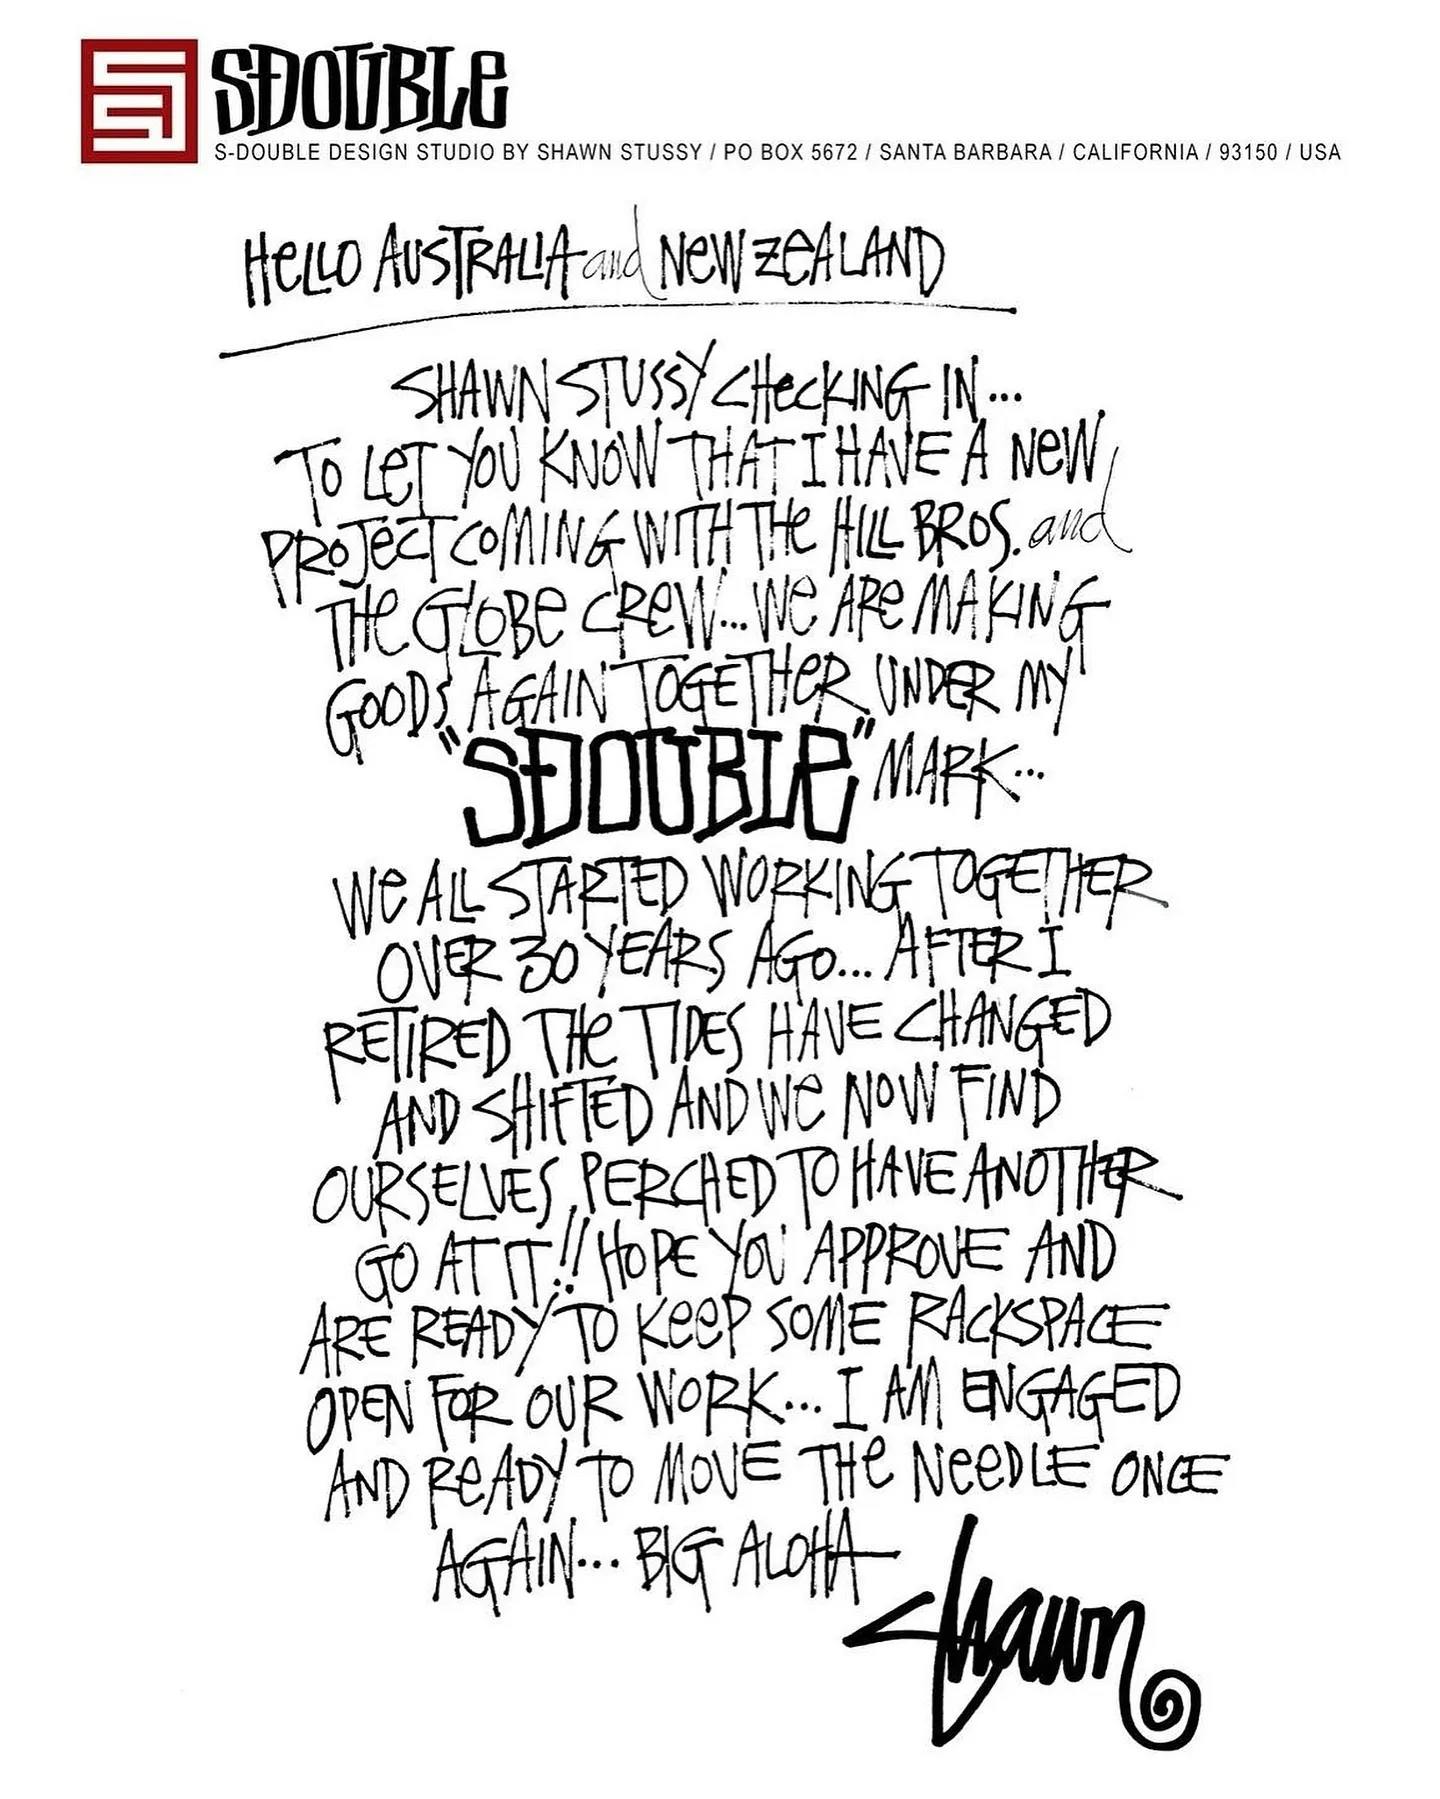 SDOUBLE
S-DOUBLE DESIGN STUDIO BY SHAWN STUSSY / PO BOX 5672 / SANTA BARBARA / CALIFORNIA / 93150 / USA
HeLLO AUSTRALIA and NeW ZeALAND
SHAWN STUSSY CHecKING IN...
TO LeT YOU KNOW THAT I HAVE A NeW
PROJecT COMING WITH THe HILL BROS. and
THe GLOBe CReW... We ARe MAKING
GOODS AGAIN TOGETHeR UNDER MY
"SDOUBLe" MARK...
We ALL STARTED WORKING TOGETHER
OVER 30 YEARS AGO... AFTER I
RETIRED THe TIDES HAVE CHANGED
AND SHIFTED AND We NOW FIND
OURSELVES PERCHED TO HAVE ANOTHER
GO AT IT!! HOPE YOU APPROVE AND
ARE READY TO KeeP SOME RACKSPACE
OPEN FOR OUR WORK... I AM ENGAGED
AND ReADY TO MOVE THe NeeDLE ONCE
AGAIN... BIG ALOHA
Shawn